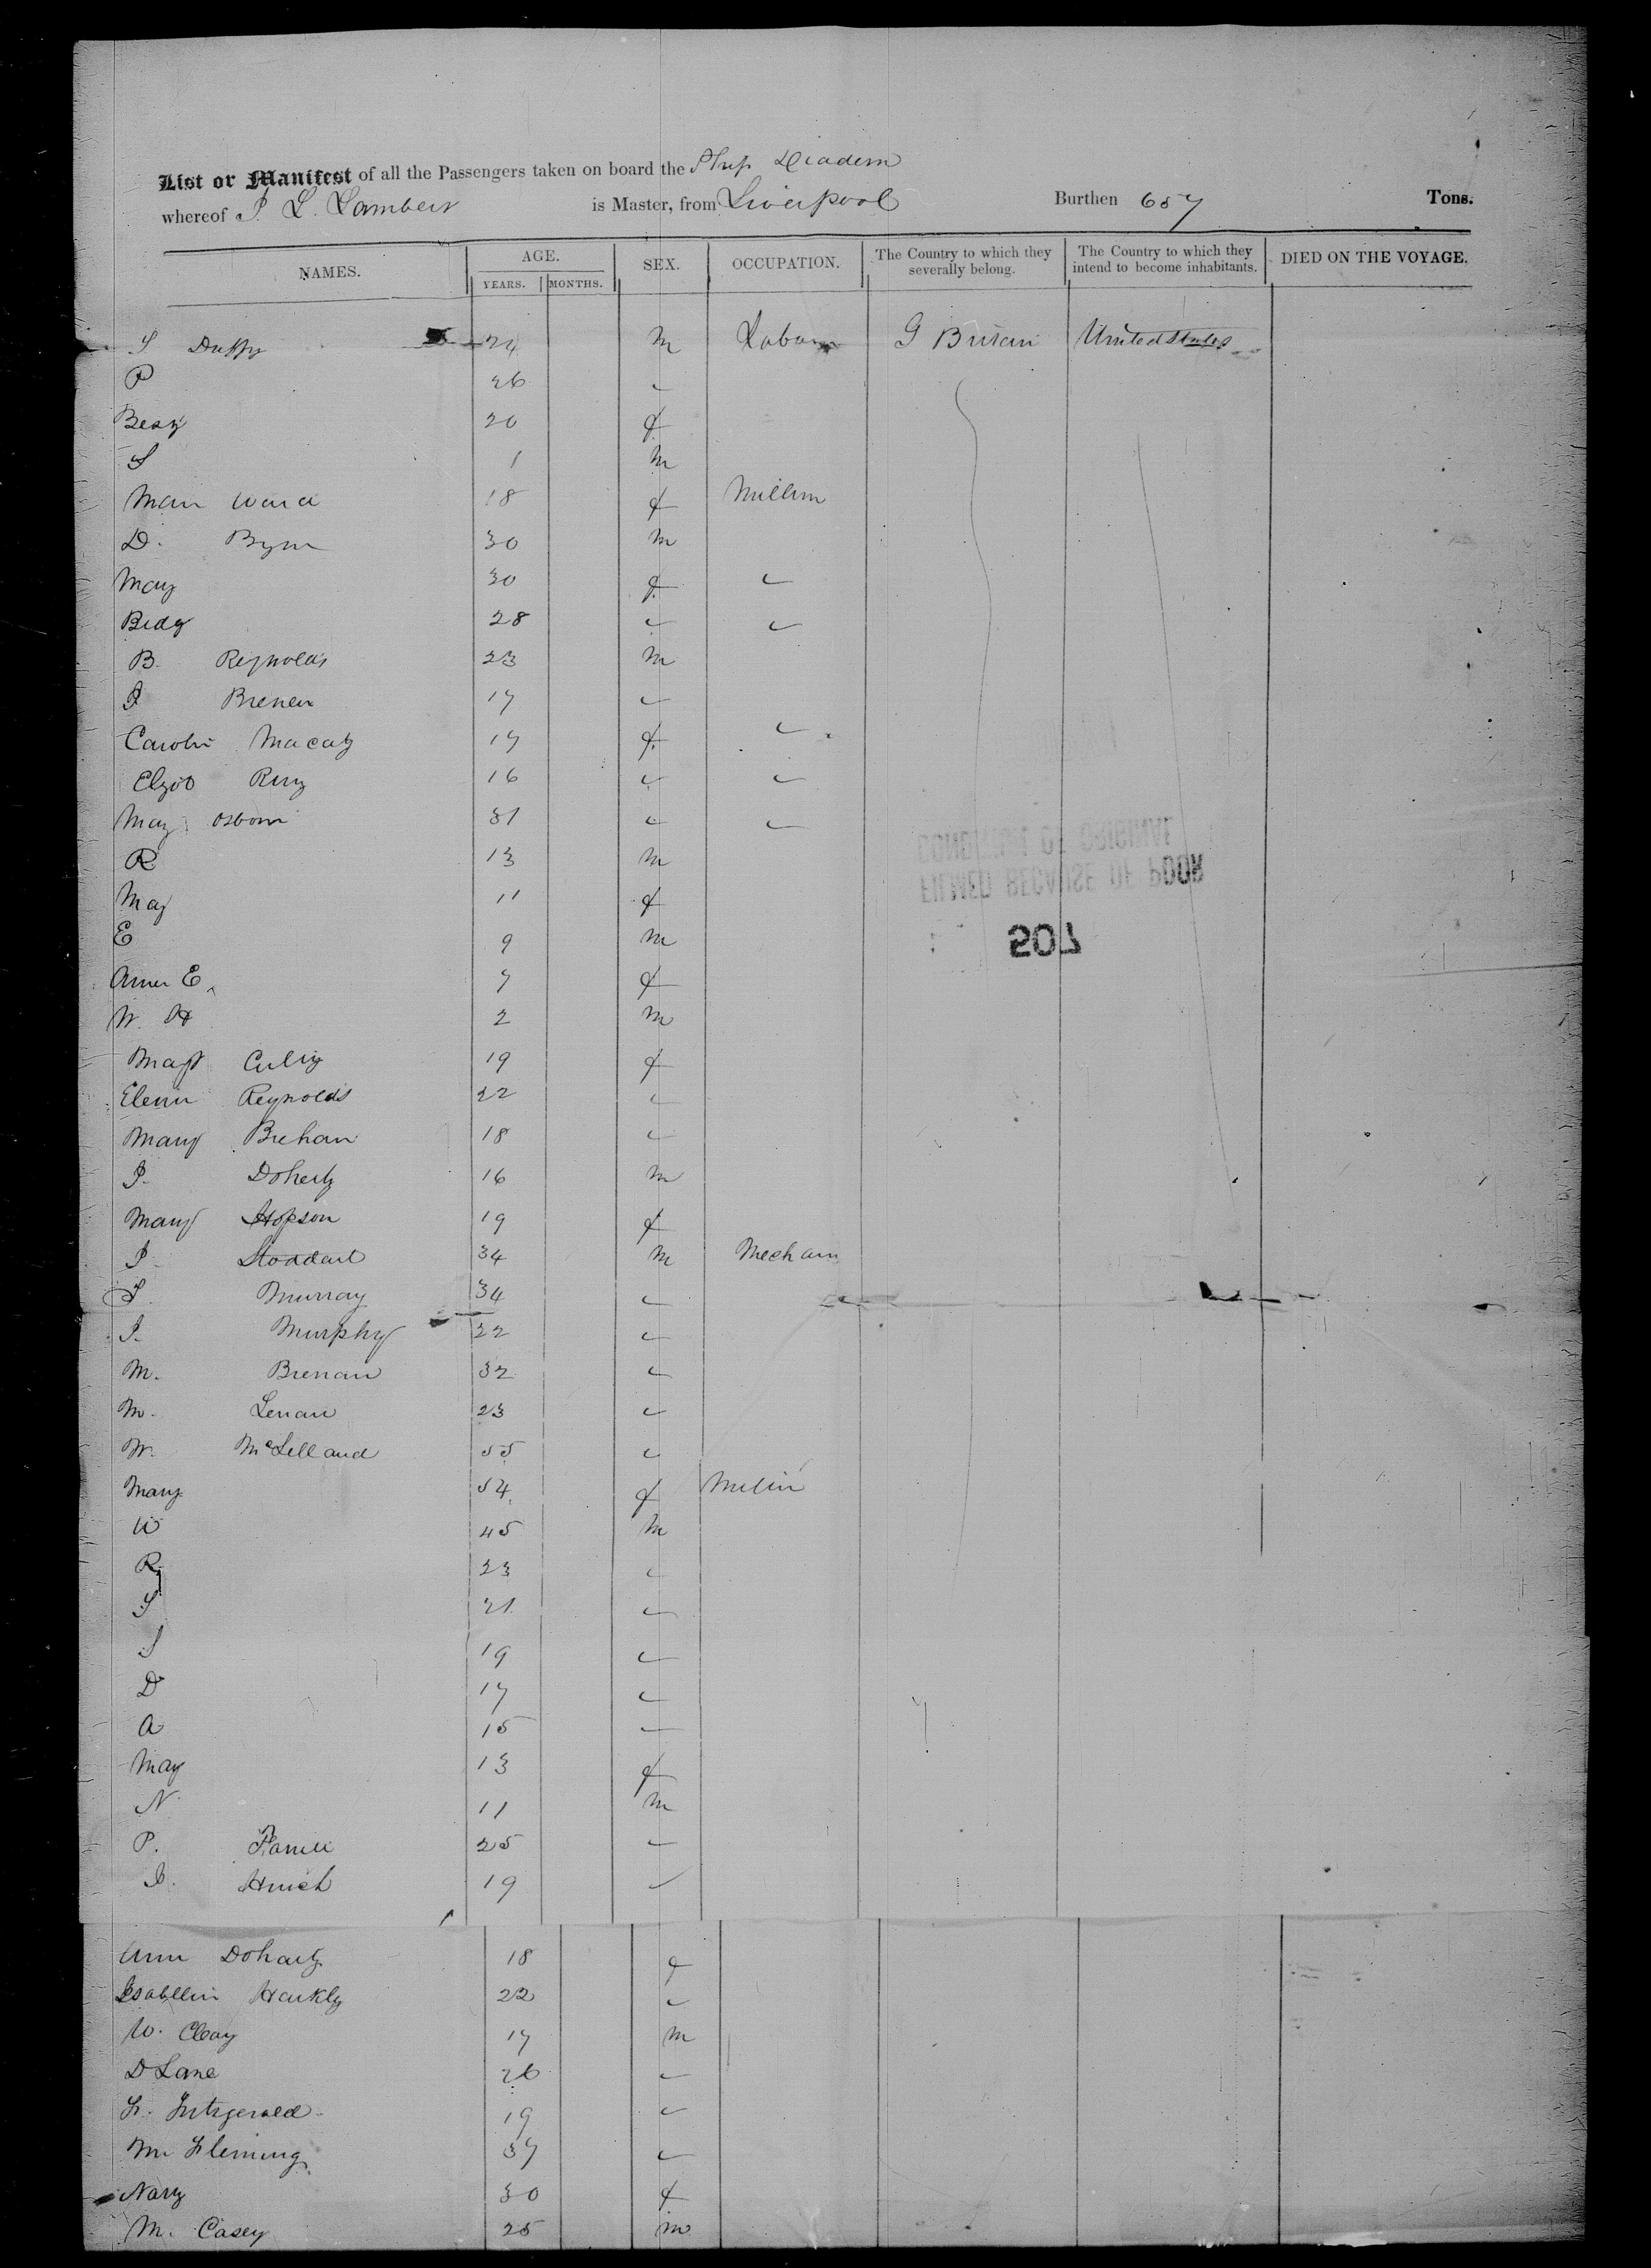 List or Manifest of all the Passengers taken on board the Ship Diadem
whereof P. L. Lambert is Master, from Liverpool Burthen 657 Tons.
NAMES. AGE. YEARS. MONTHS. SEX. OCCUPATION. The Country to which they severally belong. The Country to which they intend to become inhabitants. DIED ON THE VOYAGE.
Duffy 24 m Labour G Britain United States
P 26 "
Besy 20 f
S 1 m
Ward 18 f
D. Byrn 30 m
Mary 30 f "
Bidg 28 " "
B. Reynolds 23 m
Brenen 17 "
Carolin Macaty 17 f "
16 " "
May Osborn 31 " "
R 13 m
May 11 f
E 9 m
E. 7 f
W. H 2 m
19 f
Elenn Reynolds 22 "
Mary Brehan 18 "
P. Doherty 16 m
Mary Hopson 19 f
P Stoddart 34 m Mechani
Murray 34 "
Murphy 22 "
M. Brenan 32 "
M. Lenan 23 "
W. McLelland 55 "
Mary 54 f
W 45 m
R 23 "
S 21 "
S 19 "
D 17 "
A 15 "
May 13 f
N 11 m
P. 25 "
19 "
Ann Doharty 18 f
Isabellin Harkly 22 "
W. Cleay 17 m
D Lane 26 "
Fitzgerald 19 "
Fleming 37 "
Nary 30 f
M. Casey 25 m
FILMED BECAUSE OF POOR
CONDITION OF ORIGINAL
507